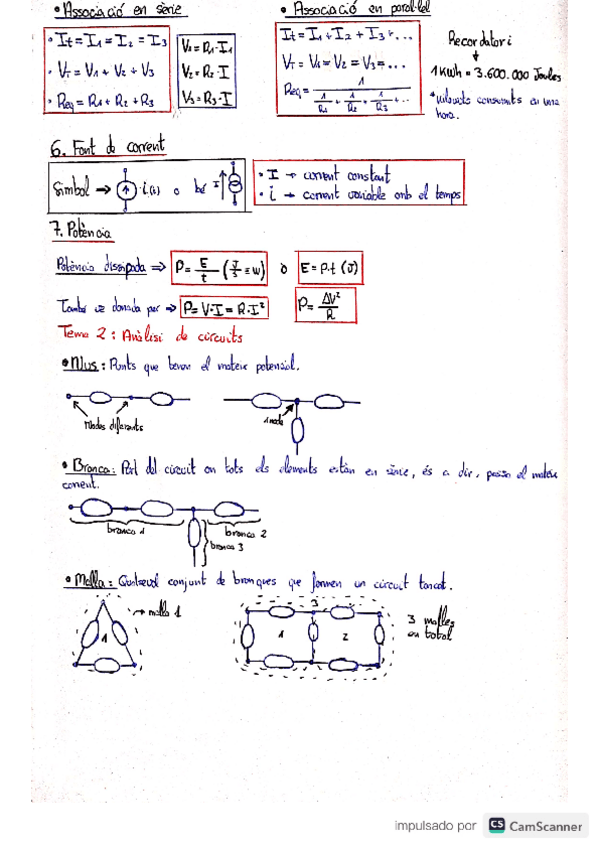 • Associació en sèrie
• It = I1 = I2 = I3
• VT = V1 + V2 + V3
• Req = R1 + R2 + R3
V1 = R1·I1
V2 = R2·I
V3 = R3·I
• Associació en paral·lel
It = I1 + I2 + I3 + ...
VT = V1 = V2 = V3 = ...
Req = 1 / (1/R1 + 1/R2 + 1/R3 + ...)
Recordatori
↓
1 KWh = 3.600.000 Joules
consumits en una
hora.
6. Font de corrent
Símbol → i(t) o bé I
• I → corrent constant
• i → corrent variable amb el temps
7. Potència
Potència dissipada ⇒ P = E/t (J/s = W) o E = P·t (J)
També ve donada per ⇒ P = V·I = R·I² P = ΔV²/R
Tema 2: Anàlisi de circuits
• Nus: Punts que tenen el mateix potencial.
Nodes diferents
1 node
• Branca: Part del circuit on tots els elements estàn en sèrie, és a dir, passa el mateix
corrent.
branca 1
branca 2
branca 3
• Malla: Qualsevol conjunt de branques que formen un circuit tancat.
→ malla 1
1
3
1 2
3 malles
en total
impulsado por CS CamScanner